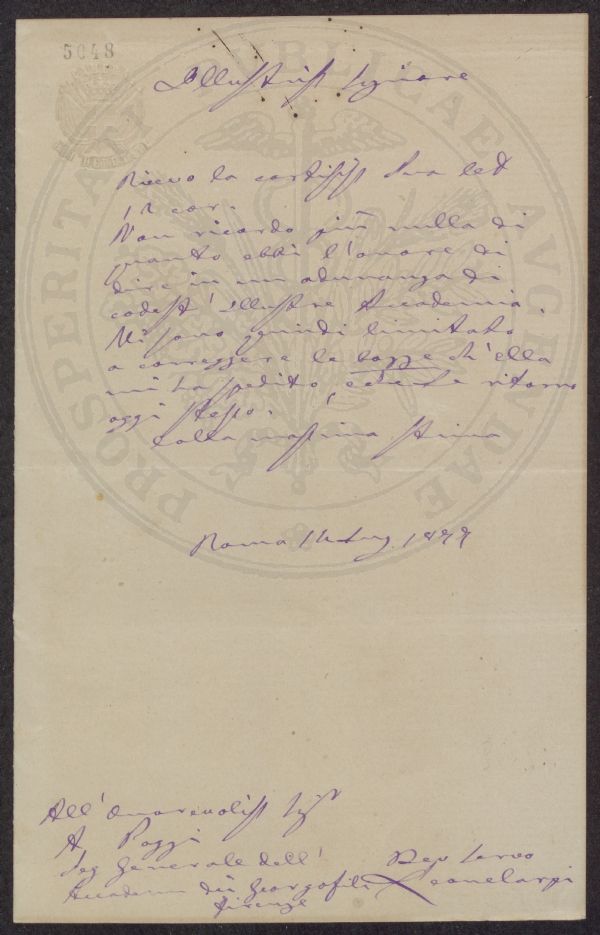 5048
PROSPERITATI PUBLICAE AUGENDAE
Illustriss Signore
Ricevo la cortesiss Sua del
12 cor.
Non ricordo più nulla di
quanto ebbi l'onore di
dire in un adunanza di
codest'Illustre Accademia.
Mi sono quindi limitato
a correggere le bozze ch'ella
mi ha spedito, e ritorno
oggi stesso.
Colla massima stima
Roma 14 Lug. 1877
All'Onorevoliss Sigr
A. Poggi
Seg Generale dell'
Accadem dei Georgofili
Firenze
Devo Servo
Leone Carpi